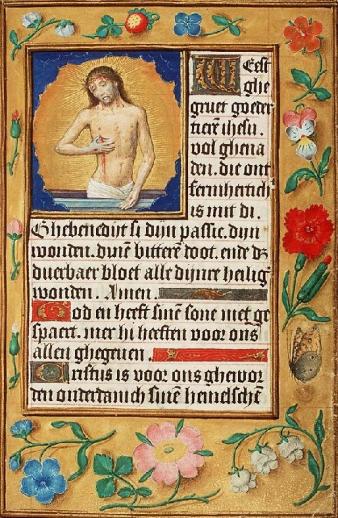 Weest
ghe
gruet goeder
tierē ihesu.
vol ghena
den. die ont
fermhertich
is mit di.
Ghebenedijt si dijn passie. dijn
wonden. dijnē bitterē doot. ende dz
duerbaer bloet alle dijnre heiliḡ
wonden. Amen.
God en heeft sinē sone niet ge
spaert. mer hi heeften voor ons
allen ghegeuen.
Cristus is voor ons ghewor
den onderdanich sinē hemelschē